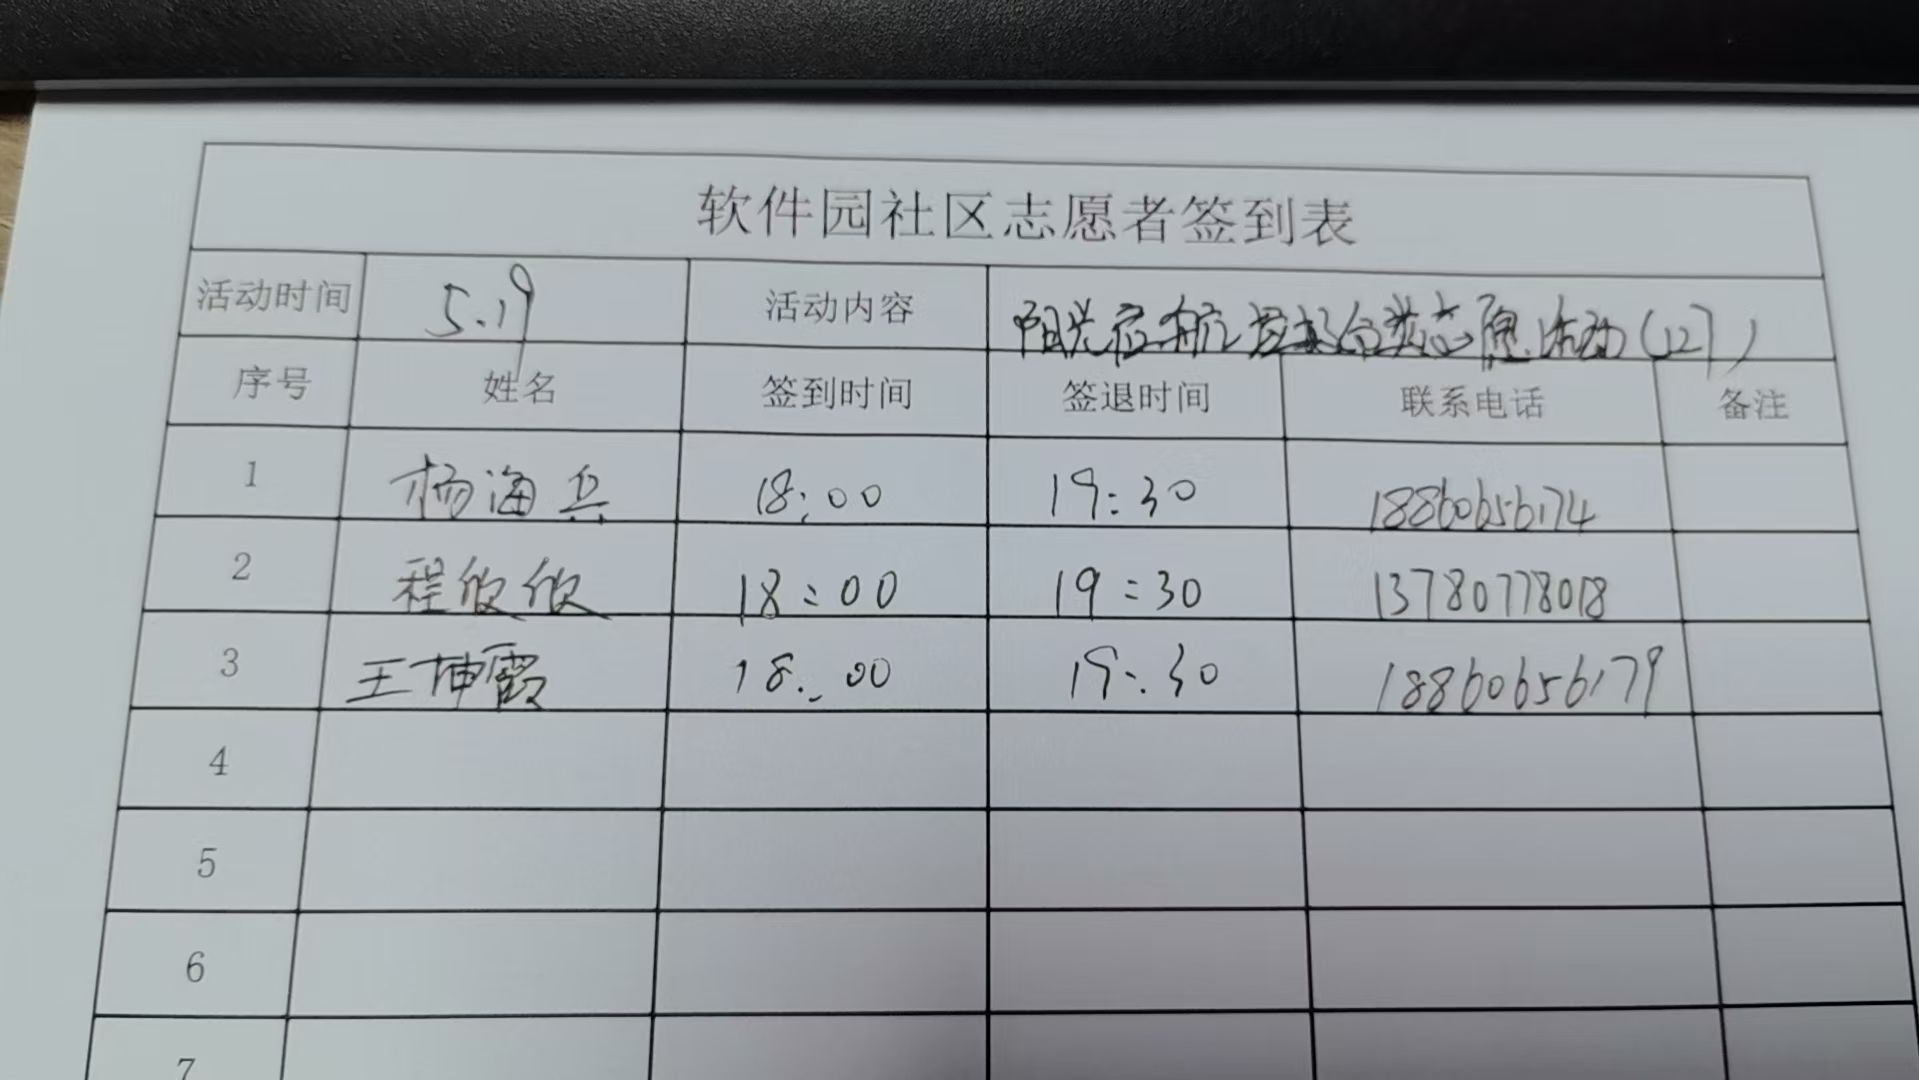 软件园社区志愿者签到表
活动时间 5.19 活动内容 阳光启航垃圾分类志愿活动(12)
序号 姓名 签到时间 签退时间 联系电话 备注
1 杨海兵 18:00 19:30 18860656174
2 程 18:00 19:30 13780778018
3 王坤霞 18:00 19:30 18860656179
4
5
6
7